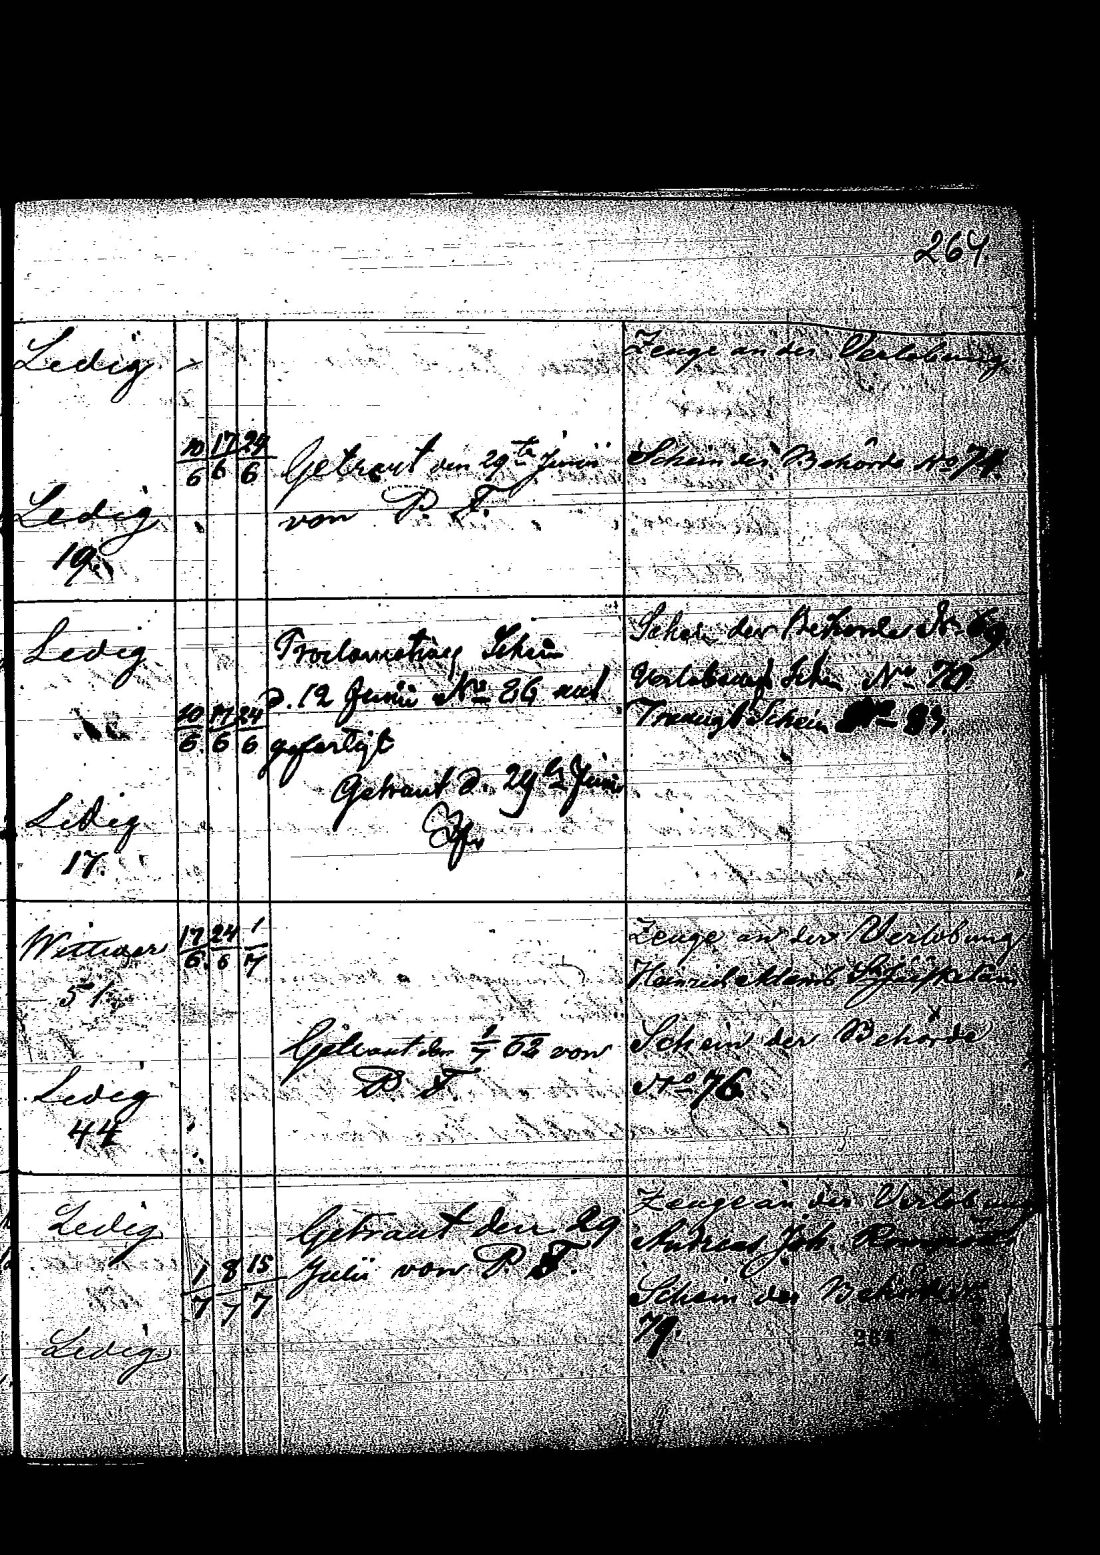 264.
Ledig
10/6 17/6 24/6
Ledig
19.
Getraut den 29ten Junii
von P. F.
Zeuge an der Verlobung
Schein der Behörde No 74.
Ledig
10/6 17/6 24/6
Ledig
17.
Proclamations Schein
d. 12 Junii No 86 aus
gefertigt
Getraut d. 29ten Junii
Schein der Behörde No 69
Verlobungs Schein No 70
Schein No 83.
Wittwer
51
17/6 24/6 1/7
Ledig
44
Getraut den 1/7 02 von
P. F.
Zeuge an der Verlobung
Heinrich
Schein der Behörde
No 76
Ledig
1/7 8/7 15/7
Ledig
Getraut den 29
Julii von P. F.
Zeuge an der Verlobung
Andreas Joh.
Schein der Behörde
79.
264